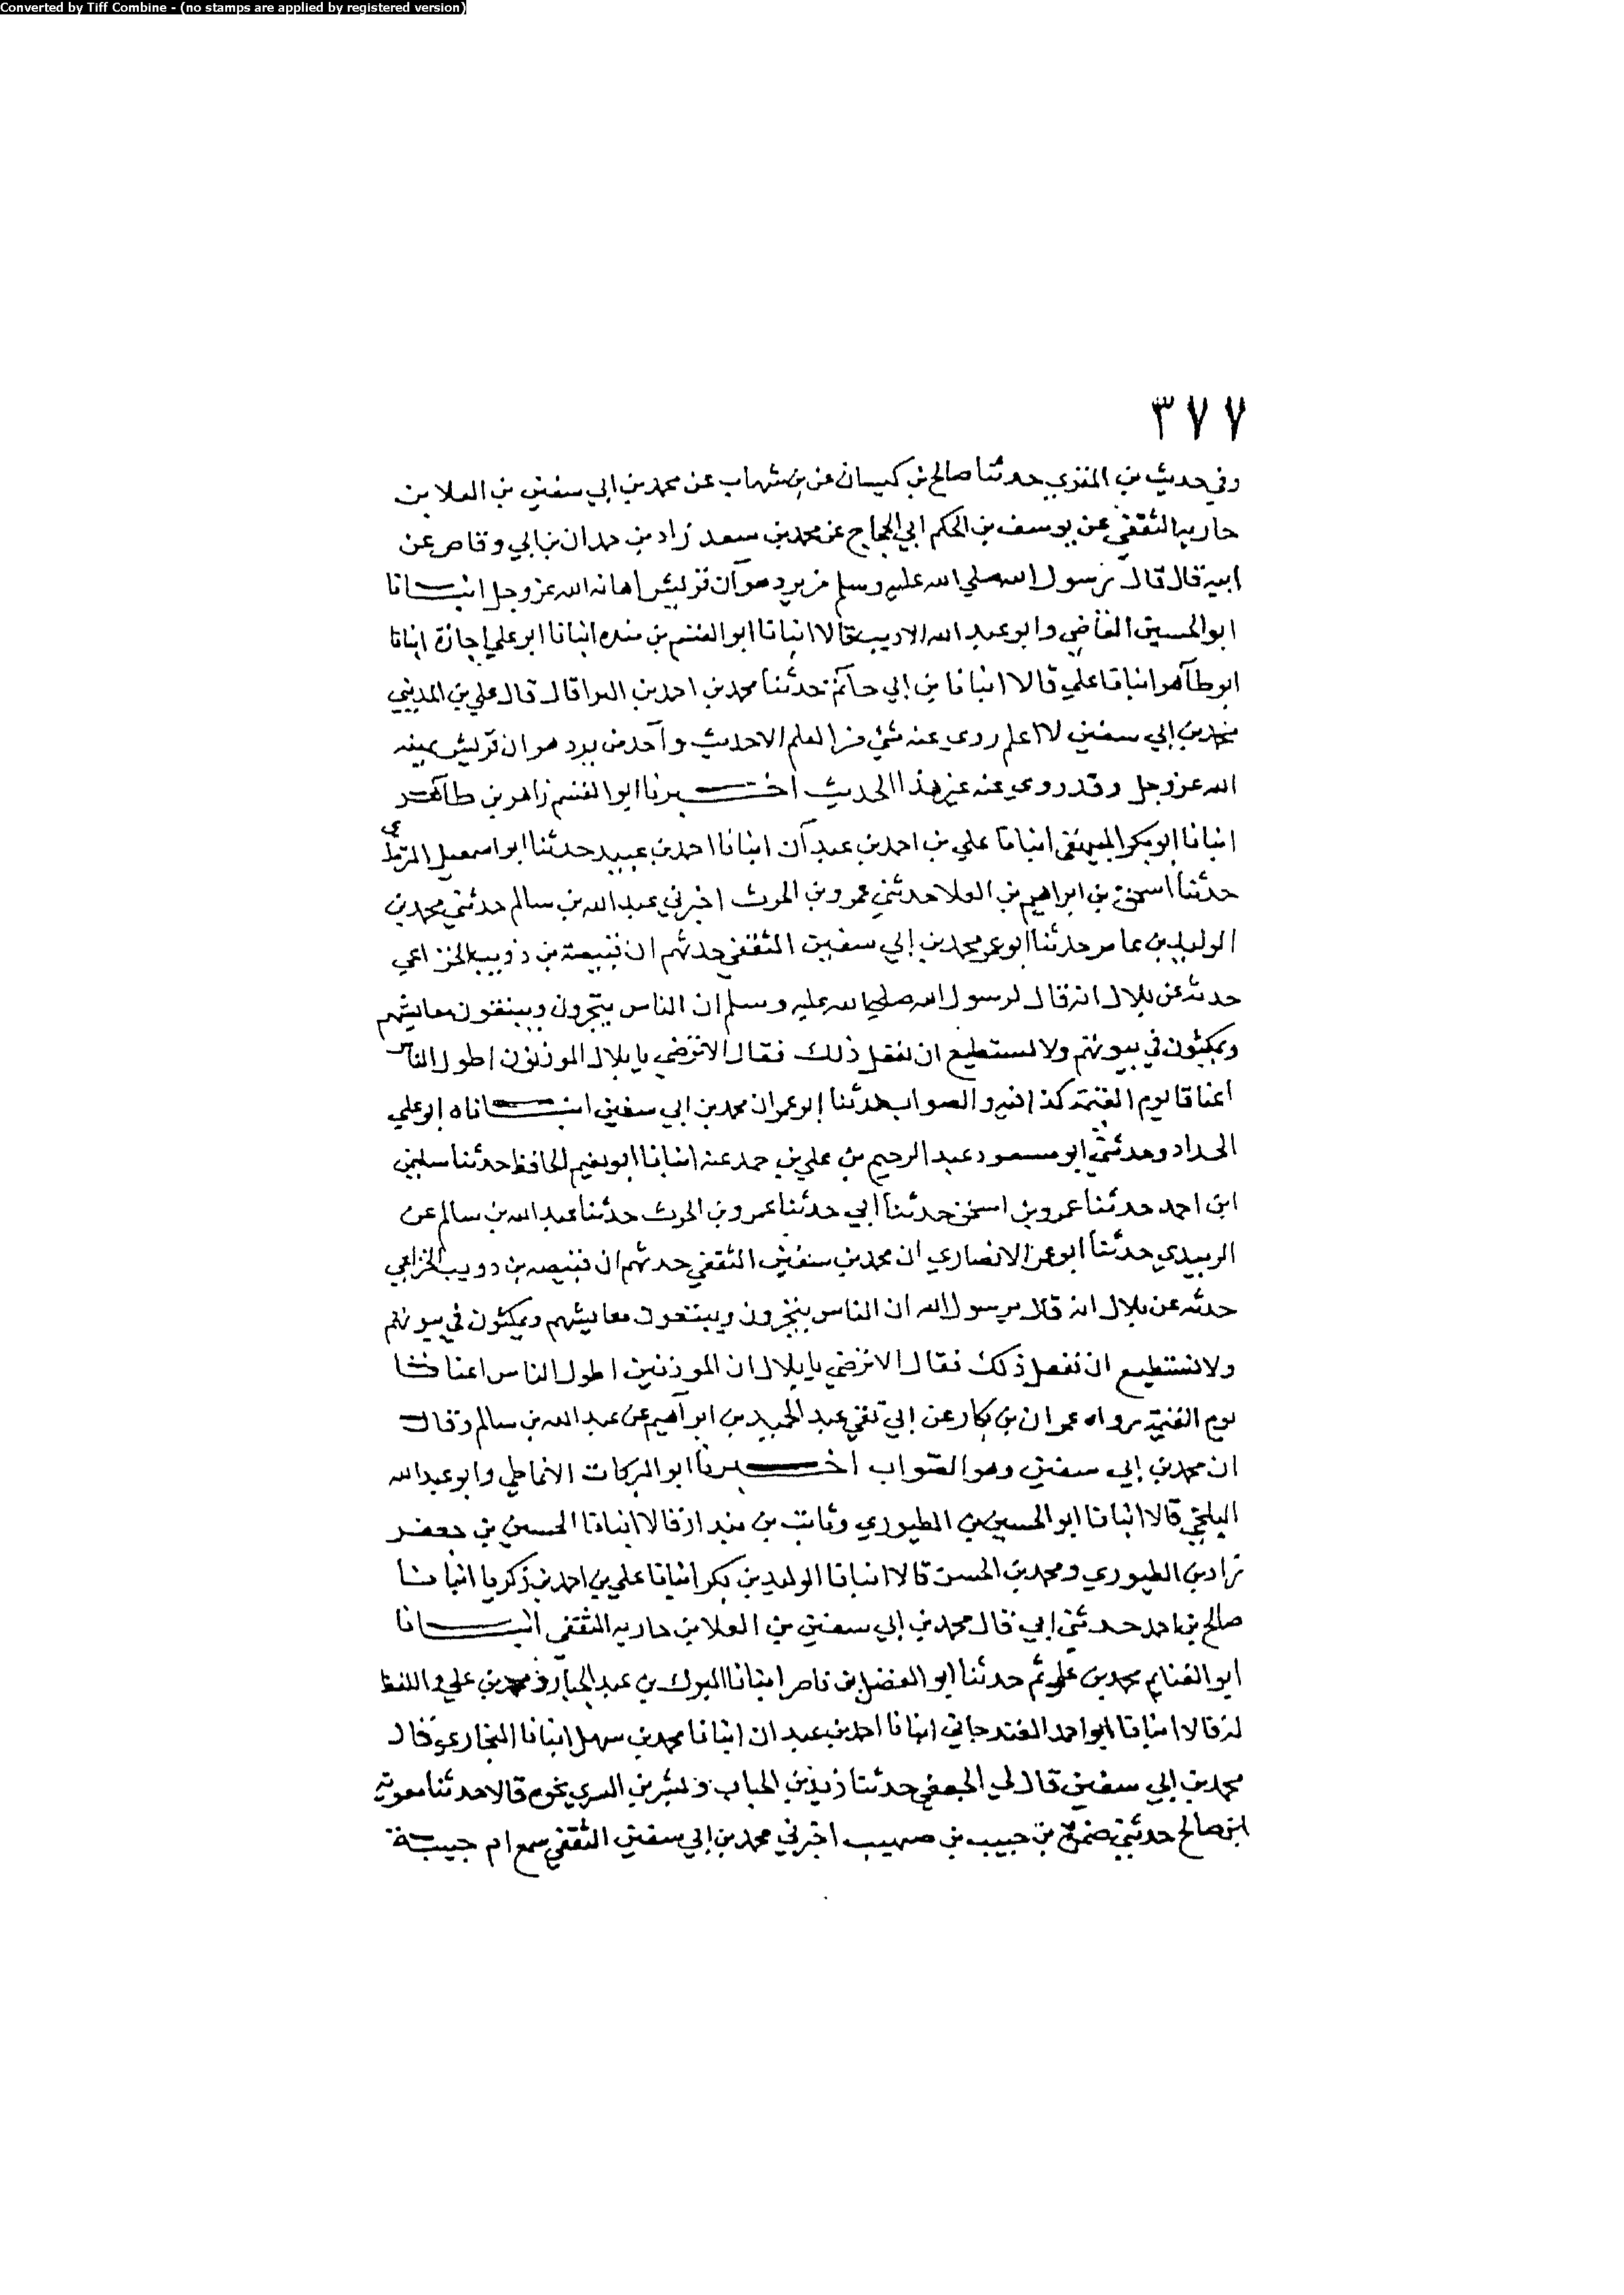 Converted by Tiff Combine - (no stamps are applied by registered version)
٣٧٧
وفي حديث بن المقري حدثنا صالح بن كيسان عن بن شهاب عن محمد بن ابي سفين بن العلا بن
جارية الثقفي عن يوسف بن الحكم ابي الحجاج عن محمد بن سعد زاد بن حمدان بن ابي وقاص عن
ابيه قال قال رسول الله صلي الله عليه وسلم من يرد هوان قريش اهانه الله عز وجل انبـــانا
ابو الحسين القاضي وابو عبد الله الاديب قالا انبانا ابو القسم بن منده انبانا ابو علي اجازة انبانا
ابو طاهر انبانا علي قالا انبانا بن ابي حاتم حدثنا محمد بن احمد بن البرا قال قال علي بن المديني
محمد بن ابي سفين لا اعلم روي عنه شي من العلم الا حديث واحد من يرد هوان قريش يهينه
الله عز وجل وقد روي عنه غير هذا الحديث اخـــبرنا ابو القسم زاهر بن طاهر
انبانا ابو بكر البيهقي انبانا علي بن احمد بن عبدان انبانا احمد بن عبيد حدثنا ابو اسمعيل الترمذي
حدثنا اسحق بن ابراهيم بن العلا حدثني عمرو بن الحرث اخبرني عبد الله بن سالم حدثني محمد بن
الوليد بن عامر حدثنا ابو عمر محمد بن ابي سفين الثقفي حدثهم ان قبيصة بن ذويب الخزاعي
حدثه عن بلال انه قال لرسول الله صلي الله عليه وسلم ان الناس يتجرون ويبتغون معايشهم
ويمكثون في بيوتهم ولا نستطيع ان نفعل ذلك فقال الا ترضي يا بلال الموذنون اطول الناس
اعناقا يوم القيمة كذا فيه والصواب حدثنا ابو عمران محمد بن ابي سفين انبـــاناه ابو علي
الحداد وحدثني ابو مسعود عبد الرحيم بن علي بن حمد عنه انبانا ابو نعيم الحافظ حدثنا سليمن
ابن احمد حدثنا عمرو بن اسحق حدثنا ابي حدثنا عمرو بن الحرث حدثنا عبد الله بن سالم عن
الزبيدي حدثنا ابو عمر الانصاري ان محمد بن سفين الثقفي حدثهم ان قبيصه بن دويب الخزاعي
حدثه عن بلال انه قال يرسول الله ان الناس يتجرون ويبتغون معايشهم ويمكثون في بيوتهم
ولا نستطيع ان نفعل ذلك فقال الا ترضي يا بلال ان الموذنين اطول الناس اعناقا
يوم القيمة رواه عمران بن بكار عن ابي تقي عبد الحميد بن ابراهيم عن عبد الله بن سالم وقال
ان محمد بن ابي سفين وهو الصواب اخـــبرنا ابو البركات الانماطي وابو عبد الله
البلخي قالا انبانا ابو الحسين بن الطيوري وثابت بن بندار قالا انبانا الحسين بن جعفر
زاد بن الطيوري ومحمد بن الحسن قالا انبانا الوليد بن بكر انبانا علي بن احمد بن زكريا انبانا
صالح بن احمد حدثني ابي قال محمد بن ابي سفين بن العلا بن جاريه الثقفي انبـــانا
ابو الغنايم محمد بن علي ثم حدثنا ابو الفضل بن ناصر انبانا المبرك بن عبد الجبار ومحمد بن علي واللفظ
له قالا انبانا ابو احمد الغندجاني انبانا احمد بن عبدان انبانا محمد بن سهل انبانا البخاري قال
محمد بن ابي سفين قال لي الجعفي حدثنا زيد بن الحباب وبشر بن السري نحوه قالا حدثنا معوية
ابن صالح حدثني ضمرة بن حبيب بن صهيب اخبرني محمد بن ابي سفين الثقفي سمع ام حبيبة